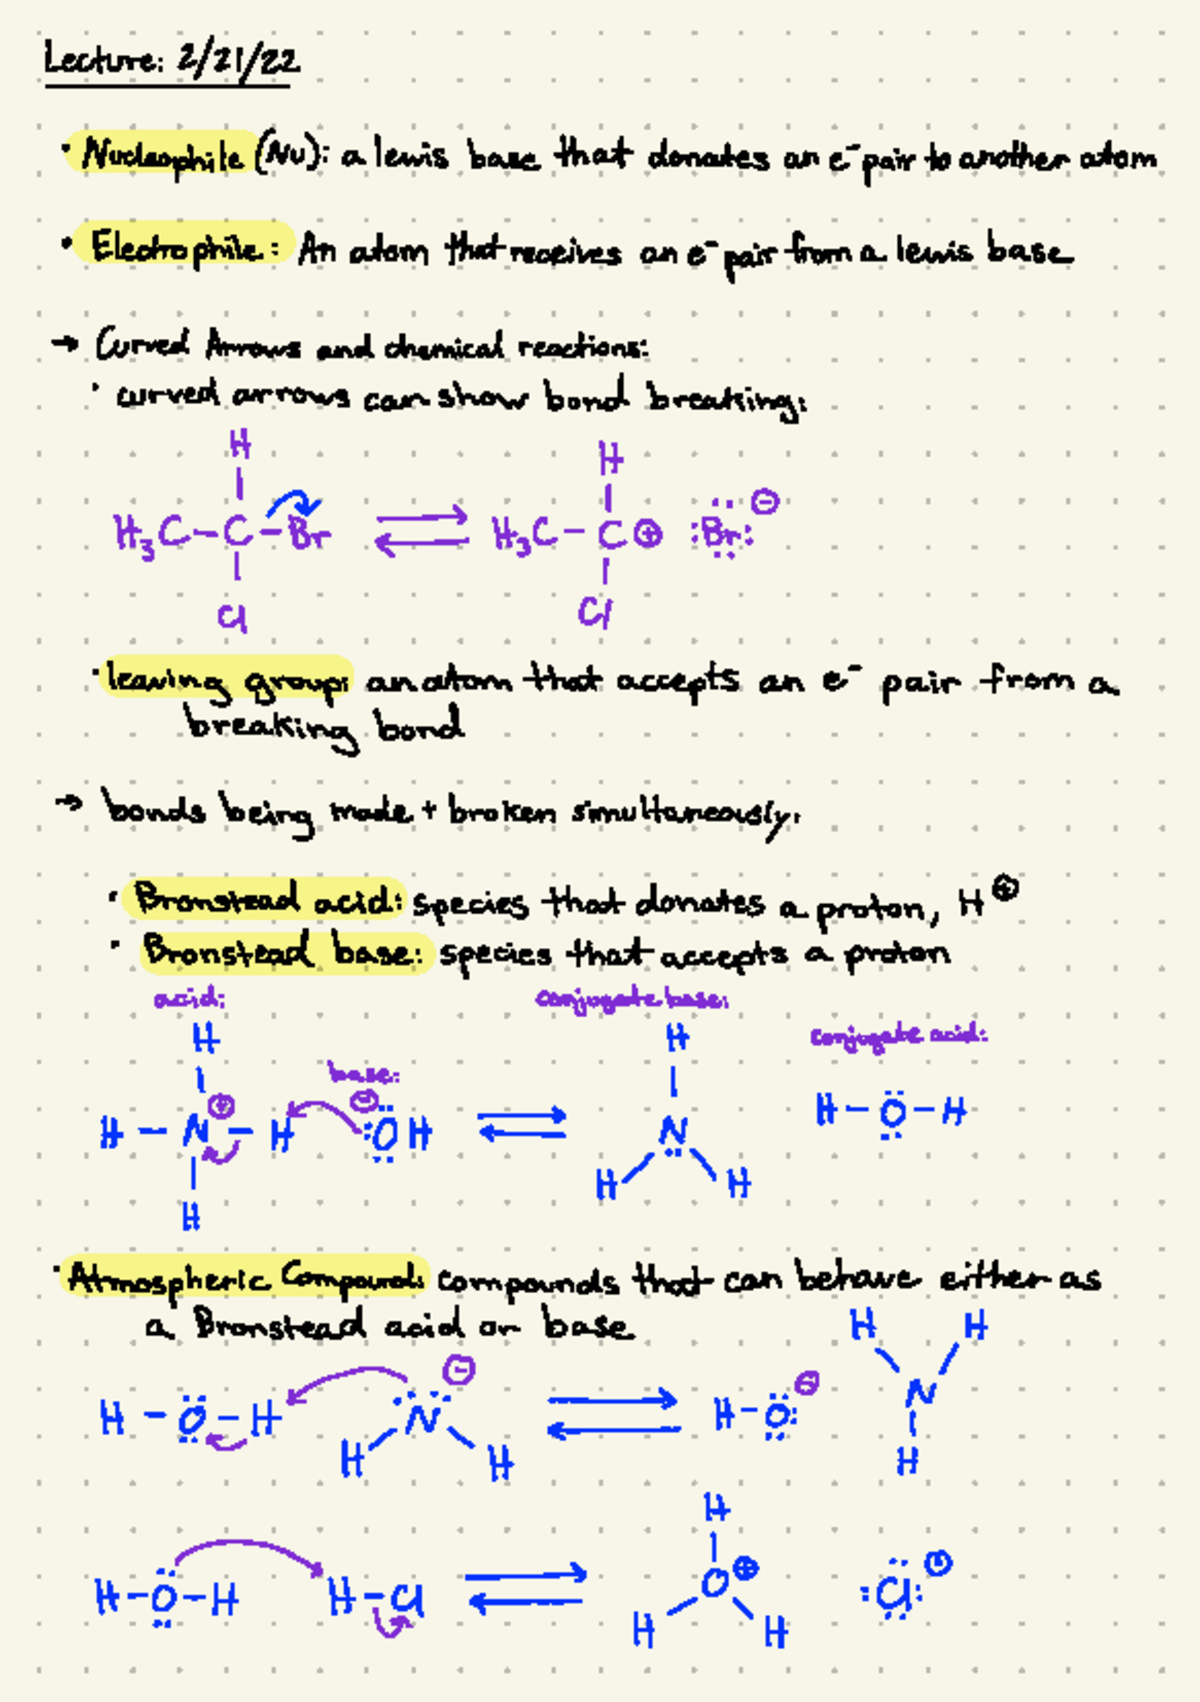 Lecture: 2/21/22
• Nucleophile (Nu): a lewis base that donates an e⁻ pair to another atom
• Electrophile: An atom that receives an e⁻ pair from a lewis base
→ Curved Arrows and chemical reactions:
• curved arrows can show bond breaking:
H H
H₃C–C–Br ⇌ H₃C–C⊕ :Br: ⊖
Cl Cl
• leaving group: an atom that accepts an e⁻ pair from a
breaking bond
→ bonds being made + broken simultaneously.
• Bronstead acid: species that donates a proton, H⊕
• Bronstead base: species that accepts a proton
acid: conjugate base:
H H conjugate acid:
base:
H–N⊕–H ⊖:OH ⇌ N H–O–H
H H H
• Atmospheric Compound: compounds that can behave either as
a Bronstead acid or base
H H
H–O–H N ⊖ ⇌ H–O: ⊖ N
H H H
H
H–O–H H–Cl ⇌ O⊕ :Cl: ⊖
H H